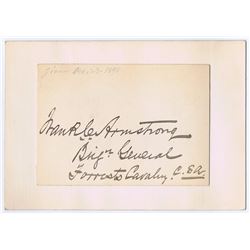 given Dec. 23 - 1898
Frank C Armstrong
Brigr General
Forrests Cavalry. C.S.A.